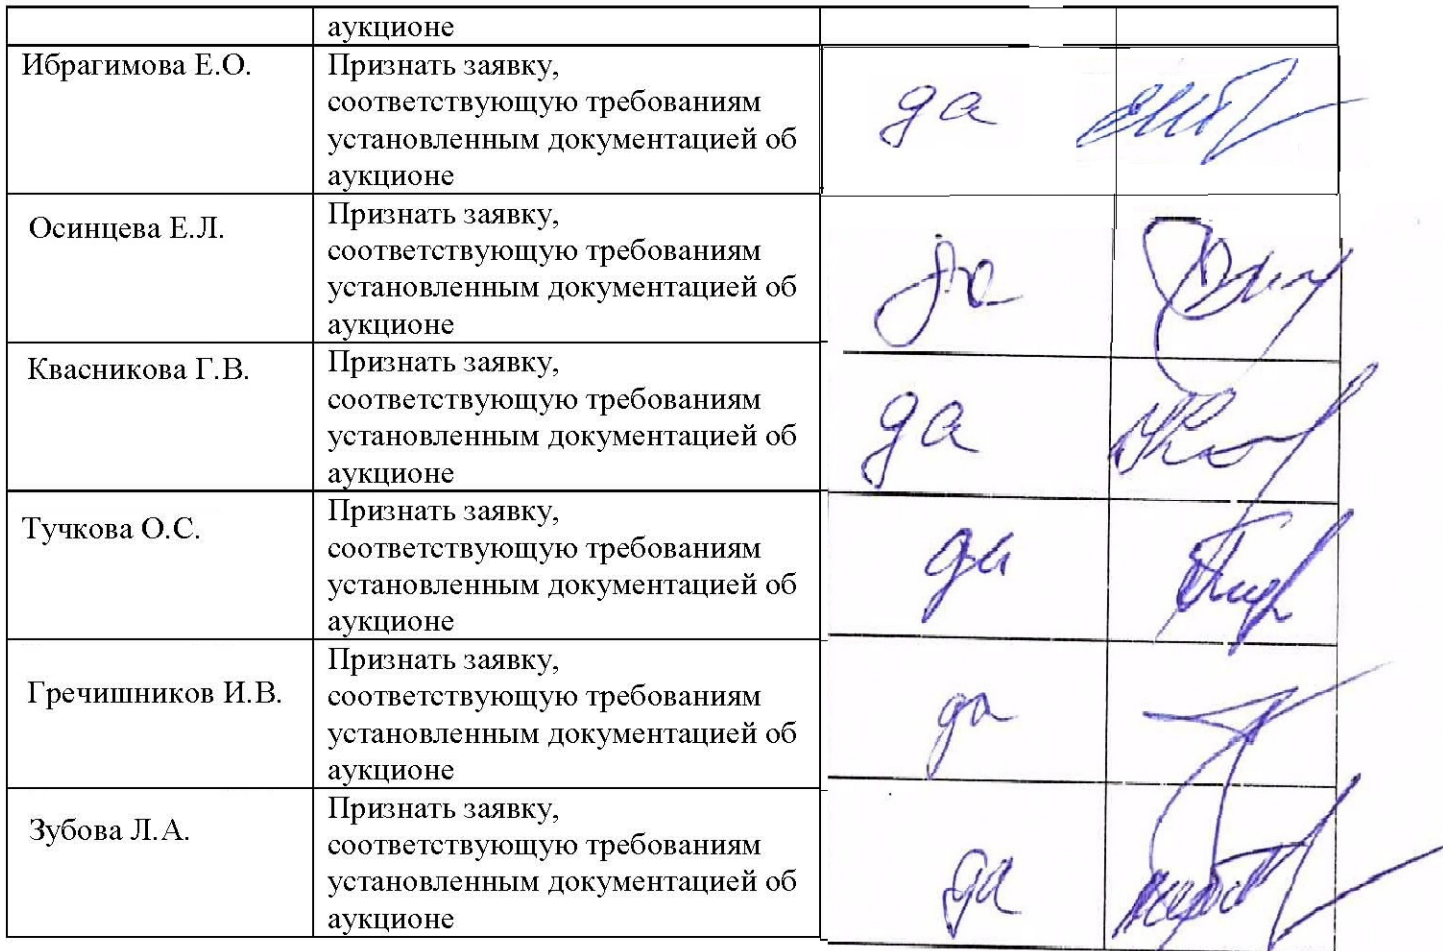 аукционе
Ибрагимова Е.О.
Признать заявку,
соответствующую требованиям
установленным документацией об
аукционе
да
Осинцева Е.Л.
Признать заявку,
соответствующую требованиям
установленным документацией об
аукционе
да
Квасникова Г.В.
Признать заявку,
соответствующую требованиям
установленным документацией об
аукционе
да
Тучкова О.С.
Признать заявку,
соответствующую требованиям
установленным документацией об
аукционе
да
Гречишников И.В.
Признать заявку,
соответствующую требованиям
установленным документацией об
аукционе
да
Зубова Л.А.
Признать заявку,
соответствующую требованиям
установленным документацией об
аукционе
да